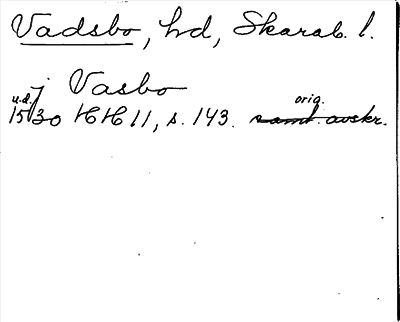 Vadsbo, hd, Skarab. l.
j Vasbo
u.d. orig.
1530 HH 11, s. 143. samt. avskr.